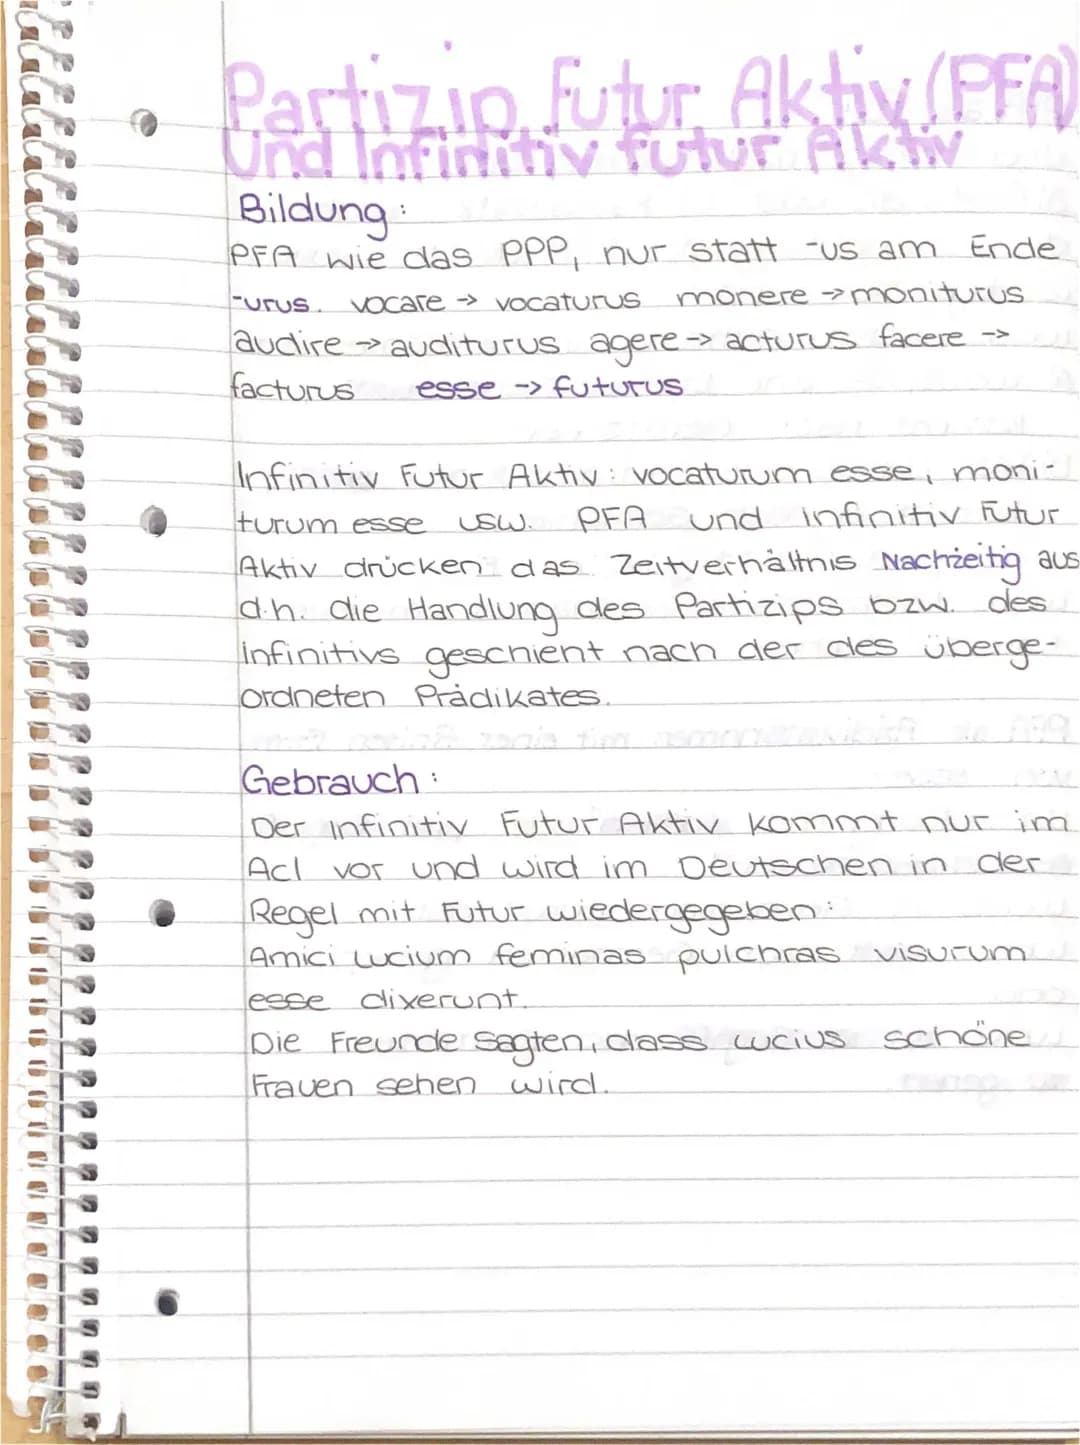 Partizip Futur Aktiv (PFA)
Und Infinitiv futur Aktiv
Bildung:
PFA wie das PPP, nur statt -us am Ende
-urus. vocare → vocaturus monere → moniturus
audire → auditurus agere → acturus facere →
facturus esse → futurus
Infinitiv Futur Aktiv: vocaturum esse, moni-
turum esse usw. PFA und infinitiv Futur
Aktiv drücken das Zeitverhältnis Nachzeitig aus
d.h. die Handlung des Partizips bzw. des
infinitivs geschient nach der des überge-
ordneten Prädikates.
Gebrauch:
Der infinitiv Futur Aktiv kommt nur im
AcI vor und wird im Deutschen in der
Regel mit Futur wiedergegeben:
Amici Lucium feminas pulchras visurum
esse dixerunt.
Die Freunde sagten, dass Lucius schöne
Frauen sehen wird.